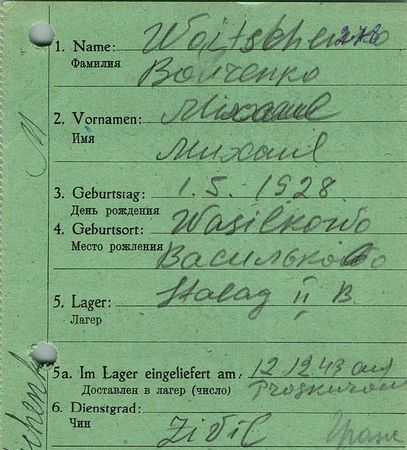 1. Name: Woitschenko 278
Фамилия Войченко
2. Vornamen: Михаил
Имя Михаил
3. Geburtstag: 1. 5. 1928.
День рождения
4. Geburtsort: Wasilkowo
Место рождения Васильково
5. Lager: Stalag II B
Лагер
5a. Im Lager eingeliefert am: 12.12.43 aus
Доставлен в лагер (число) Proskurow
6. Dienstgrad:
Чин Zivil Граж